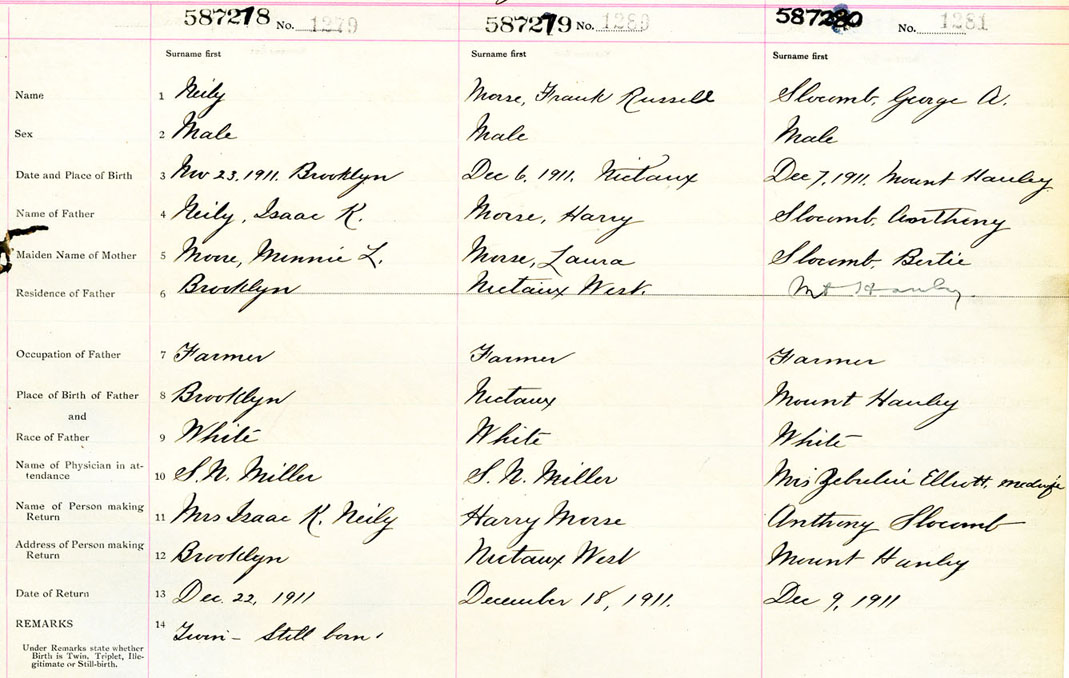 587278 No. 1279 587279 No. 1280 587280 No. 1281
Surname first Surname first Surname first
Name 1 Neily Morse, Frank Russell Slocomb, George A.
Sex 2 Male Male Male
Date and Place of Birth 3 Nov 23, 1911. Brooklyn Dec 6, 1911. Nictaux Dec 7, 1911. Mount Hanley
Name of Father 4 Neily, Isaac K. Morse, Harry Slocomb,
Maiden Name of Mother 5 Moore, Minnie L. Morse, Laura Slocomb, Bertie
Residence of Father 6 Brooklyn Nictaux West. Mt Hanley
Occupation of Father 7 Farmer Farmer Farmer
Place of Birth of Father 8 Brooklyn Nictaux Mount Hanley
and
Race of Father 9 White White White
Name of Physician in at-
tendance 10 S. N. Miller S. N. Miller Mrs Elliott,
Name of Person making
Return 11 Mrs Isaac K. Neily Harry Morse Anthony Slocomb
Address of Person making
Return 12 Brooklyn Nictaux West Mount Hanley
Date of Return 13 Dec. 22, 1911 December 18, 1911. Dec 9, 1911
REMARKS 14 Twin - Still born.
Under Remarks state whether
Birth is Twin, Triplet, Ille-
gitimate or Still-birth.